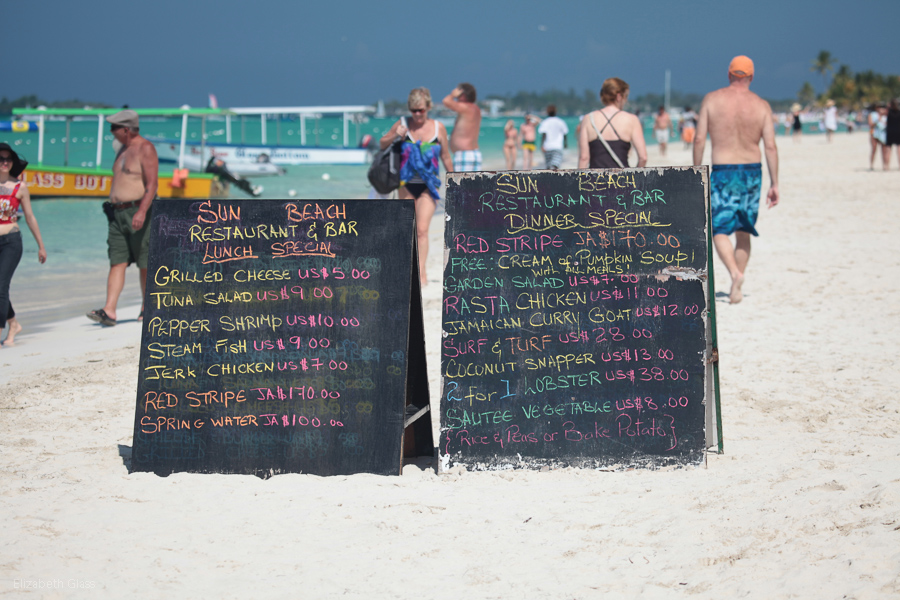 SUN BEACH
RESTAURANT & BAR
LUNCH SPECIAL
GRILLED CHEESE US$5.00
TUNA SALAD US$9.00
PEPPER SHRIMP US$10.00
STEAM FISH US$9.00
JERK CHICKEN US$7.00
RED STRIPE JA$170.00
SPRING WATER JA$100.00
SUN BEACH
RESTAURANT & BAR
DINNER SPECIAL
RED STRIPE JA$170.00
FREE: CREAM of PUMPKIN SOUP!
WITH ALL MEALS!
GARDEN SALAD US$7.00
RASTA CHICKEN US$11.00
JAMAICAN CURRY GOAT US$12.00
SURF & TURF US$28.00
COCONUT SNAPPER US$13.00
2 for 1 LOBSTER US$38.00
SAUTEE VEGETABLE US$8.00
{Rice & Peas or Bake Potato}
LASS BOT
Elizabeth